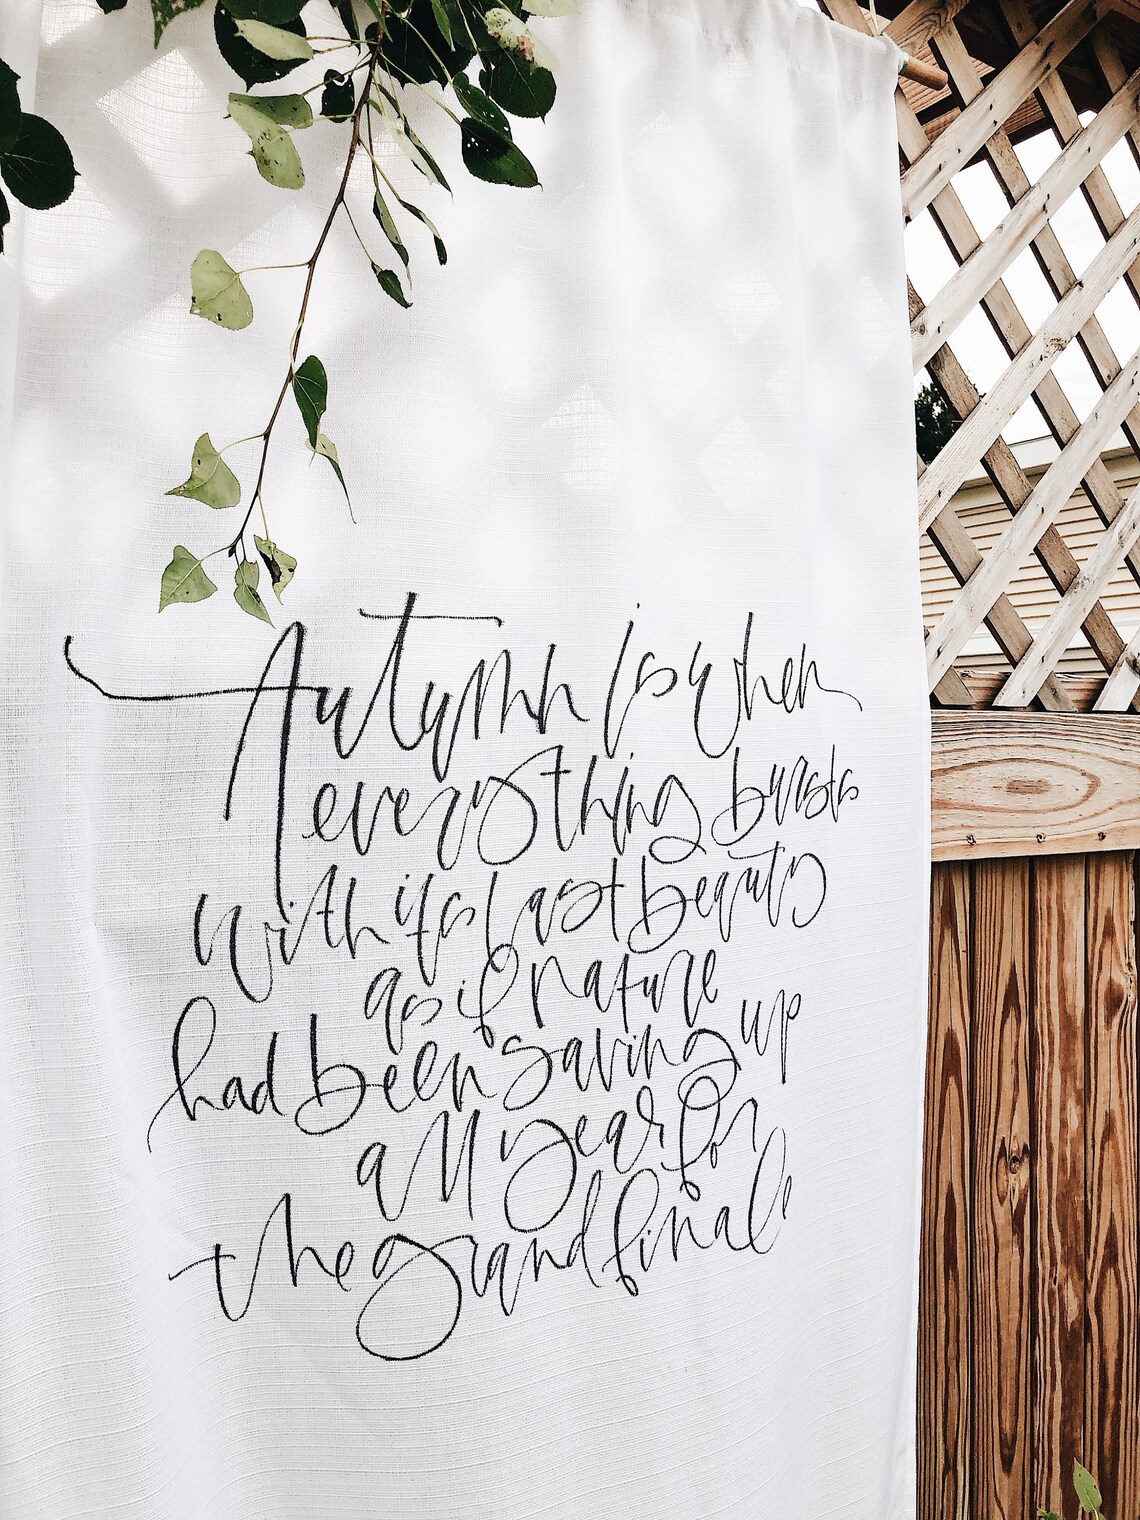 Autumn is when
everything bursts
with its last beauty
as if nature
had been saving up
all year for
the grand finale